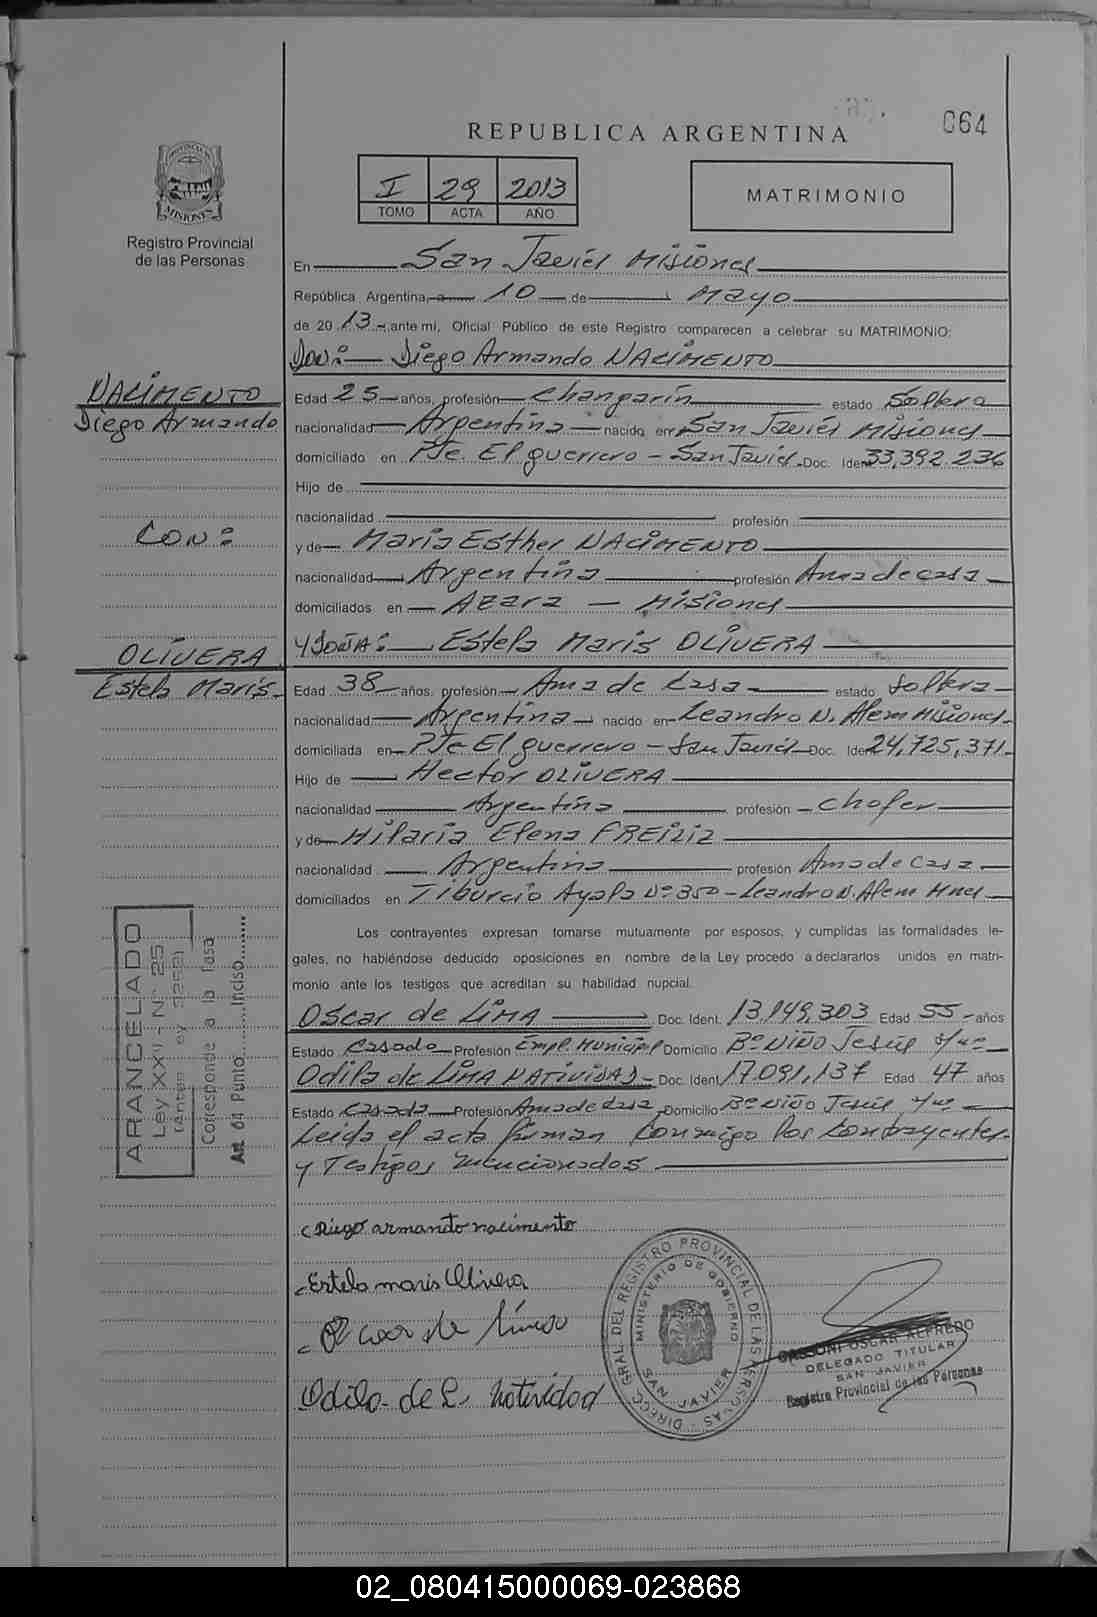 064
REPUBLICA ARGENTINA
PROVINCIA DE MISIONES
Registro Provincial
de las Personas
I 29 2013
TOMO ACTA AÑO
MATRIMONIO
En San Javier Misiones
República Argentina, a 10 de Mayo
de 2013 - ante mi, Oficial Público de este Registro comparecen a celebrar su MATRIMONIO:
DON: Diego Armando NACIMENTO
NACIMENTO
Diego Armando
CON:
OLIVERA
Estela Maris
Edad 25 años, profesión Changarin estado Soltero
nacionalidad Argentina nacido en San Javier Misiones
domiciliado en Pje. El guerrero - San Javier Doc. Ident 33,392.236
Hijo de
nacionalidad profesión
y de Maria Esther NACIMENTO
nacionalidad Argentina profesión Ama de casa
domiciliados en Azara - Misiones
Y DOÑA: Estela Maris OLIVERA
Edad 38 años, profesión Ama de Casa estado Soltera
nacionalidad Argentina nacido en Leandro N. Alem Misiones
domiciliada en Pje El guerrero - San Javier Doc. Iden 24,725,371
Hijo de Hector OLIVERA
nacionalidad Argentina profesión Chofer
y de Hilaria Elena FREIZIZ
nacionalidad Argentina profesión Ama de Casa
domiciliados en Tiburcio Ayala Nº 350 - Leandro N. Alem Mnes
Los contrayentes expresan tomarse mutuamente por esposos, y cumplidas las formalidades le-
gales, no habiéndose deducido oposiciones en nombre de la Ley procedo a declararlos unidos en matri-
monio ante los testigos que acreditan su habilidad nupcial.
Oscar de LIMA Doc. Ident. 13,149,303 Edad 55 años
Estado Casado Profesión Empl. Municipal Domicilio Bº Niño Jesús
Odila de LIMA NATIVIDAD Doc. Ident 17.091,137 Edad 47 años
Estado Casada Profesión Ama de Casa Domicilio Bº Niño Jesús
Leida el acta firman Conmigo los Contrayentes
y Testigos mencionados
ARANCELADO
Ley XXII - Nº 25
(antes ley 3252)
Corresponde a la Tasa
Art. 64 Punto........Inciso........
Diego armando nacimento
Estela maris Olivera
Oscar de Lima
Odila de L. Natividad
DIRECC. GRAL. DEL REGISTRO PROVINCIAL DE LAS PERSONAS
MINISTERIO DE GOBIERNO
SAN JAVIER
OSCAR ALFREDO
DELEGADO TITULAR
SAN JAVIER
Registro Provincial de las Personas
02_080415000069-023868